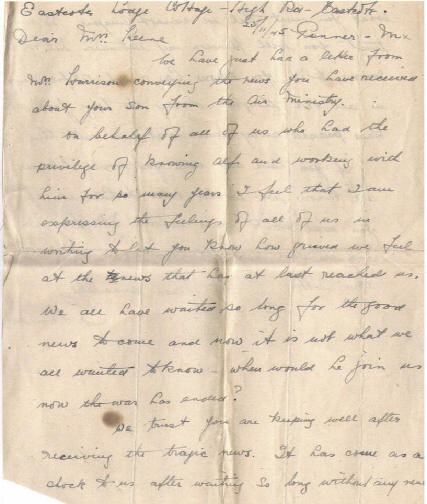 Eastcote Lodge Cottage - High Rd - Eastcote.
25/11/45 Pinner - Mx
Dear Mrs.
We have just had a letter from
Mrs. Harrison conveying the news you have received
about your son from the Air Ministry.
On behalf of all of us who had the
privilege of knowing Alf and working with
him for so many years I feel that I am
expressing the feelings of all of us in
writing to let you know how grieved we feel
at the news that has at last reached us.
We all have waited so long for the good
news to come and now it is not what we
all wanted to know - when would he join us
now the war has ended?
We trust you are keeping well after
receiving the tragic news. It has come as a
shock to us after waiting so long without any